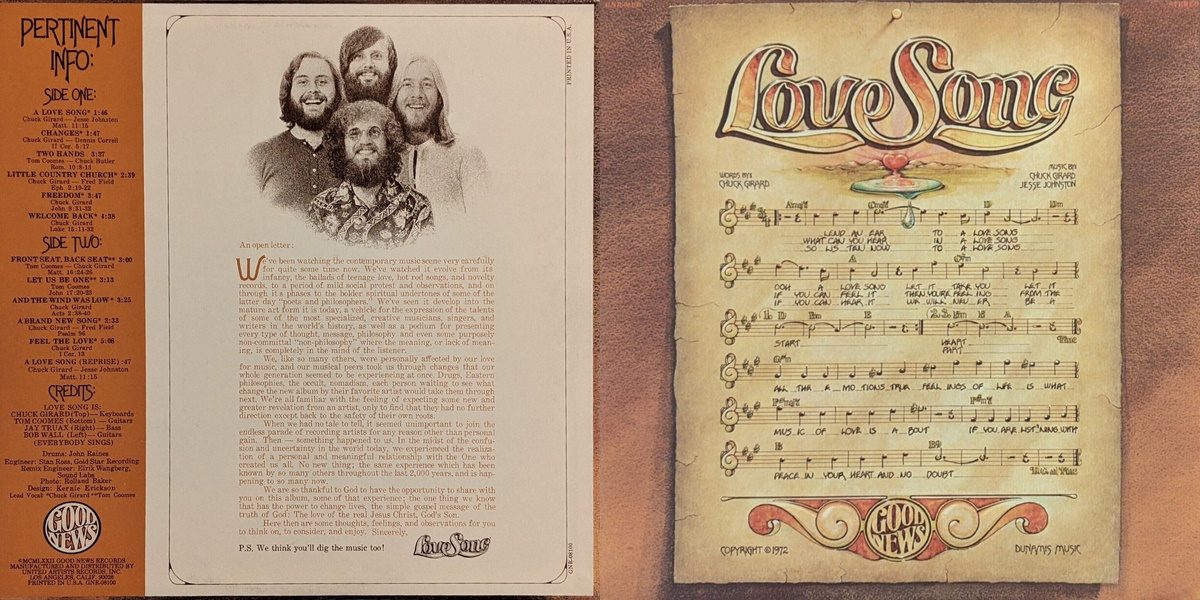 PERTINENT
INFO:
SIDE ONE:
A LOVE SONG* 1:46
Chuck Girard — Jesse Johnston
Matt. 11:15
CHANGES* 1:47
Chuck Girard — Dennis Correll
II Cor. 5:17
TWO HANDS 3:37
Tom Coomes — Chuck Butler
Rom. 10:8-13
LITTLE COUNTRY CHURCH* 2:39
Chuck Girard — Fred Field
Eph. 2:19-22
FREEDOM* 3:47
Chuck Girard
John 8:31-32
WELCOME BACK* 4:38
Chuck Girard
Luke 15:11-32
SIDE TWO:
FRONT SEAT, BACK SEAT** 3:00
Tom Coomes — Chuck Girard
Matt. 16:24-26
LET US BE ONE** 3:13
Tom Coomes
John 17:20-23
AND THE WIND WAS LOW* 3:25
Chuck Girard
Acts 2:38-40
A BRAND NEW SONG* 2:33
Chuck Girard — Fred Field
Psalm 96
FEEL THE LOVE* 5:08
Chuck Girard
I Cor. 13
A LOVE SONG (REPRISE) :47
Chuck Girard — Jesse Johnston
Matt. 11:15
CREDITS:
LOVE SONG IS:
CHUCK GIRARD (Top) — Keyboards
TOM COOMES (Bottom) — Guitars
JAY TRUAX (Right) — Bass
BOB WALL (Left) — Guitars
(EVERYBODY SINGS)
Drums: John Raines
Engineer: Stan Ross, Gold Star Recording
Remix Engineer: Eirik Wangberg,
Sound Labs
Photo: Rolland Baker
Design: Kernie Erickson
Lead Vocal *Chuck Girard **Tom Coomes
GOOD
NEWS
©MCMLXXII GOOD NEWS RECORDS
MANUFACTURED AND DISTRIBUTED BY
UNITED ARTISTS RECORDS, INC.
LOS ANGELES, CALIF. 90028
PRINTED IN U.S.A. GNR-08100
PRINTED IN U.S.A.
An open letter:
We've been watching the contemporary music scene very carefully
for quite some time now. We've watched it evolve from its
infancy, the ballads of teenage love, hot rod songs, and novelty
records, to a period of mild social protest and observations, and on
through it's phases to the bolder spiritual undertones of some of the
latter day "poets and philosophers." We've seen it develop into the
mature art form it is today, a vehicle for the expression of the talents
of some of the most specialized, creative musicians, singers, and
writers in the world's history, as well as a podium for presenting
every type of thought, message, philosophy and even some purposely
non-committal "non-philosophy" where the meaning, or lack of mean-
ing, is completely in the mind of the listener.
We, like so many others, were personally affected by our love
for music, and our musical peers took us through changes that our
whole generation seemed to be experiencing at once. Drugs, Eastern
philosophies, the occult, nomadism, each person waiting to see what
change the new album by their favorite artist would take them through
next. We're all familiar with the feeling of expecting some new and
greater revelation from an artist, only to find that they had no further
direction except back to the safety of their own roots.
When we had no tale to tell, it seemed unimportant to join the
endless parade of recording artists for any reason other than personal
gain. Then — something happened to us. In the midst of the confu-
sion and uncertainty in the world today, we experienced the realiza-
tion of a personal and meaningful relationship with the One who
created us all. No new thing; the same experience which has been
known by so many others throughout the last 2,000 years, and is hap-
pening to so many now.
We are so thankful to God to have the opportunity to share with
you on this album, some of that experience; the one thing we know
that has the power to change lives, the simple gospel message of the
truth of God: The love of the real Jesus Christ, God's Son.
Here then are some thoughts, feelings, and observations for you
to think on, to consider, and enjoy. Sincerely,
P.S. We think you'll dig the music too!
Love Song
GNR-08100
Love Song
WORDS BY:
CHUCK GIRARD
MUSIC BY:
CHUCK GIRARD
JESSE JOHNSTON
LEND AN EAR TO A LOVE SONG
WHAT CAN YOU HEAR IN A LOVE SONG
SO LIS TEN NOW TO A LOVE SONG
A
OOH A LOVE SONG LET IT TAKE YOU LET IT
IF YOU CAN FEEL IT THEN YOU'RE FEEL ING FROM THE
IF YOU CAN HEAR IT WE WILL NEV ER BE A
START HEART
PART
ALL THE E MO TIONS TRUE FEEL INGS OF LIFE IS WHAT
MUS IC OF LOVE IS A BOUT IF YOU ARE LIST'NING WITH
PEACE IN YOUR HEART AND NO DOUBT
GOOD
NEWS
COPYRIGHT © 1972
DUNAMIS MUSIC